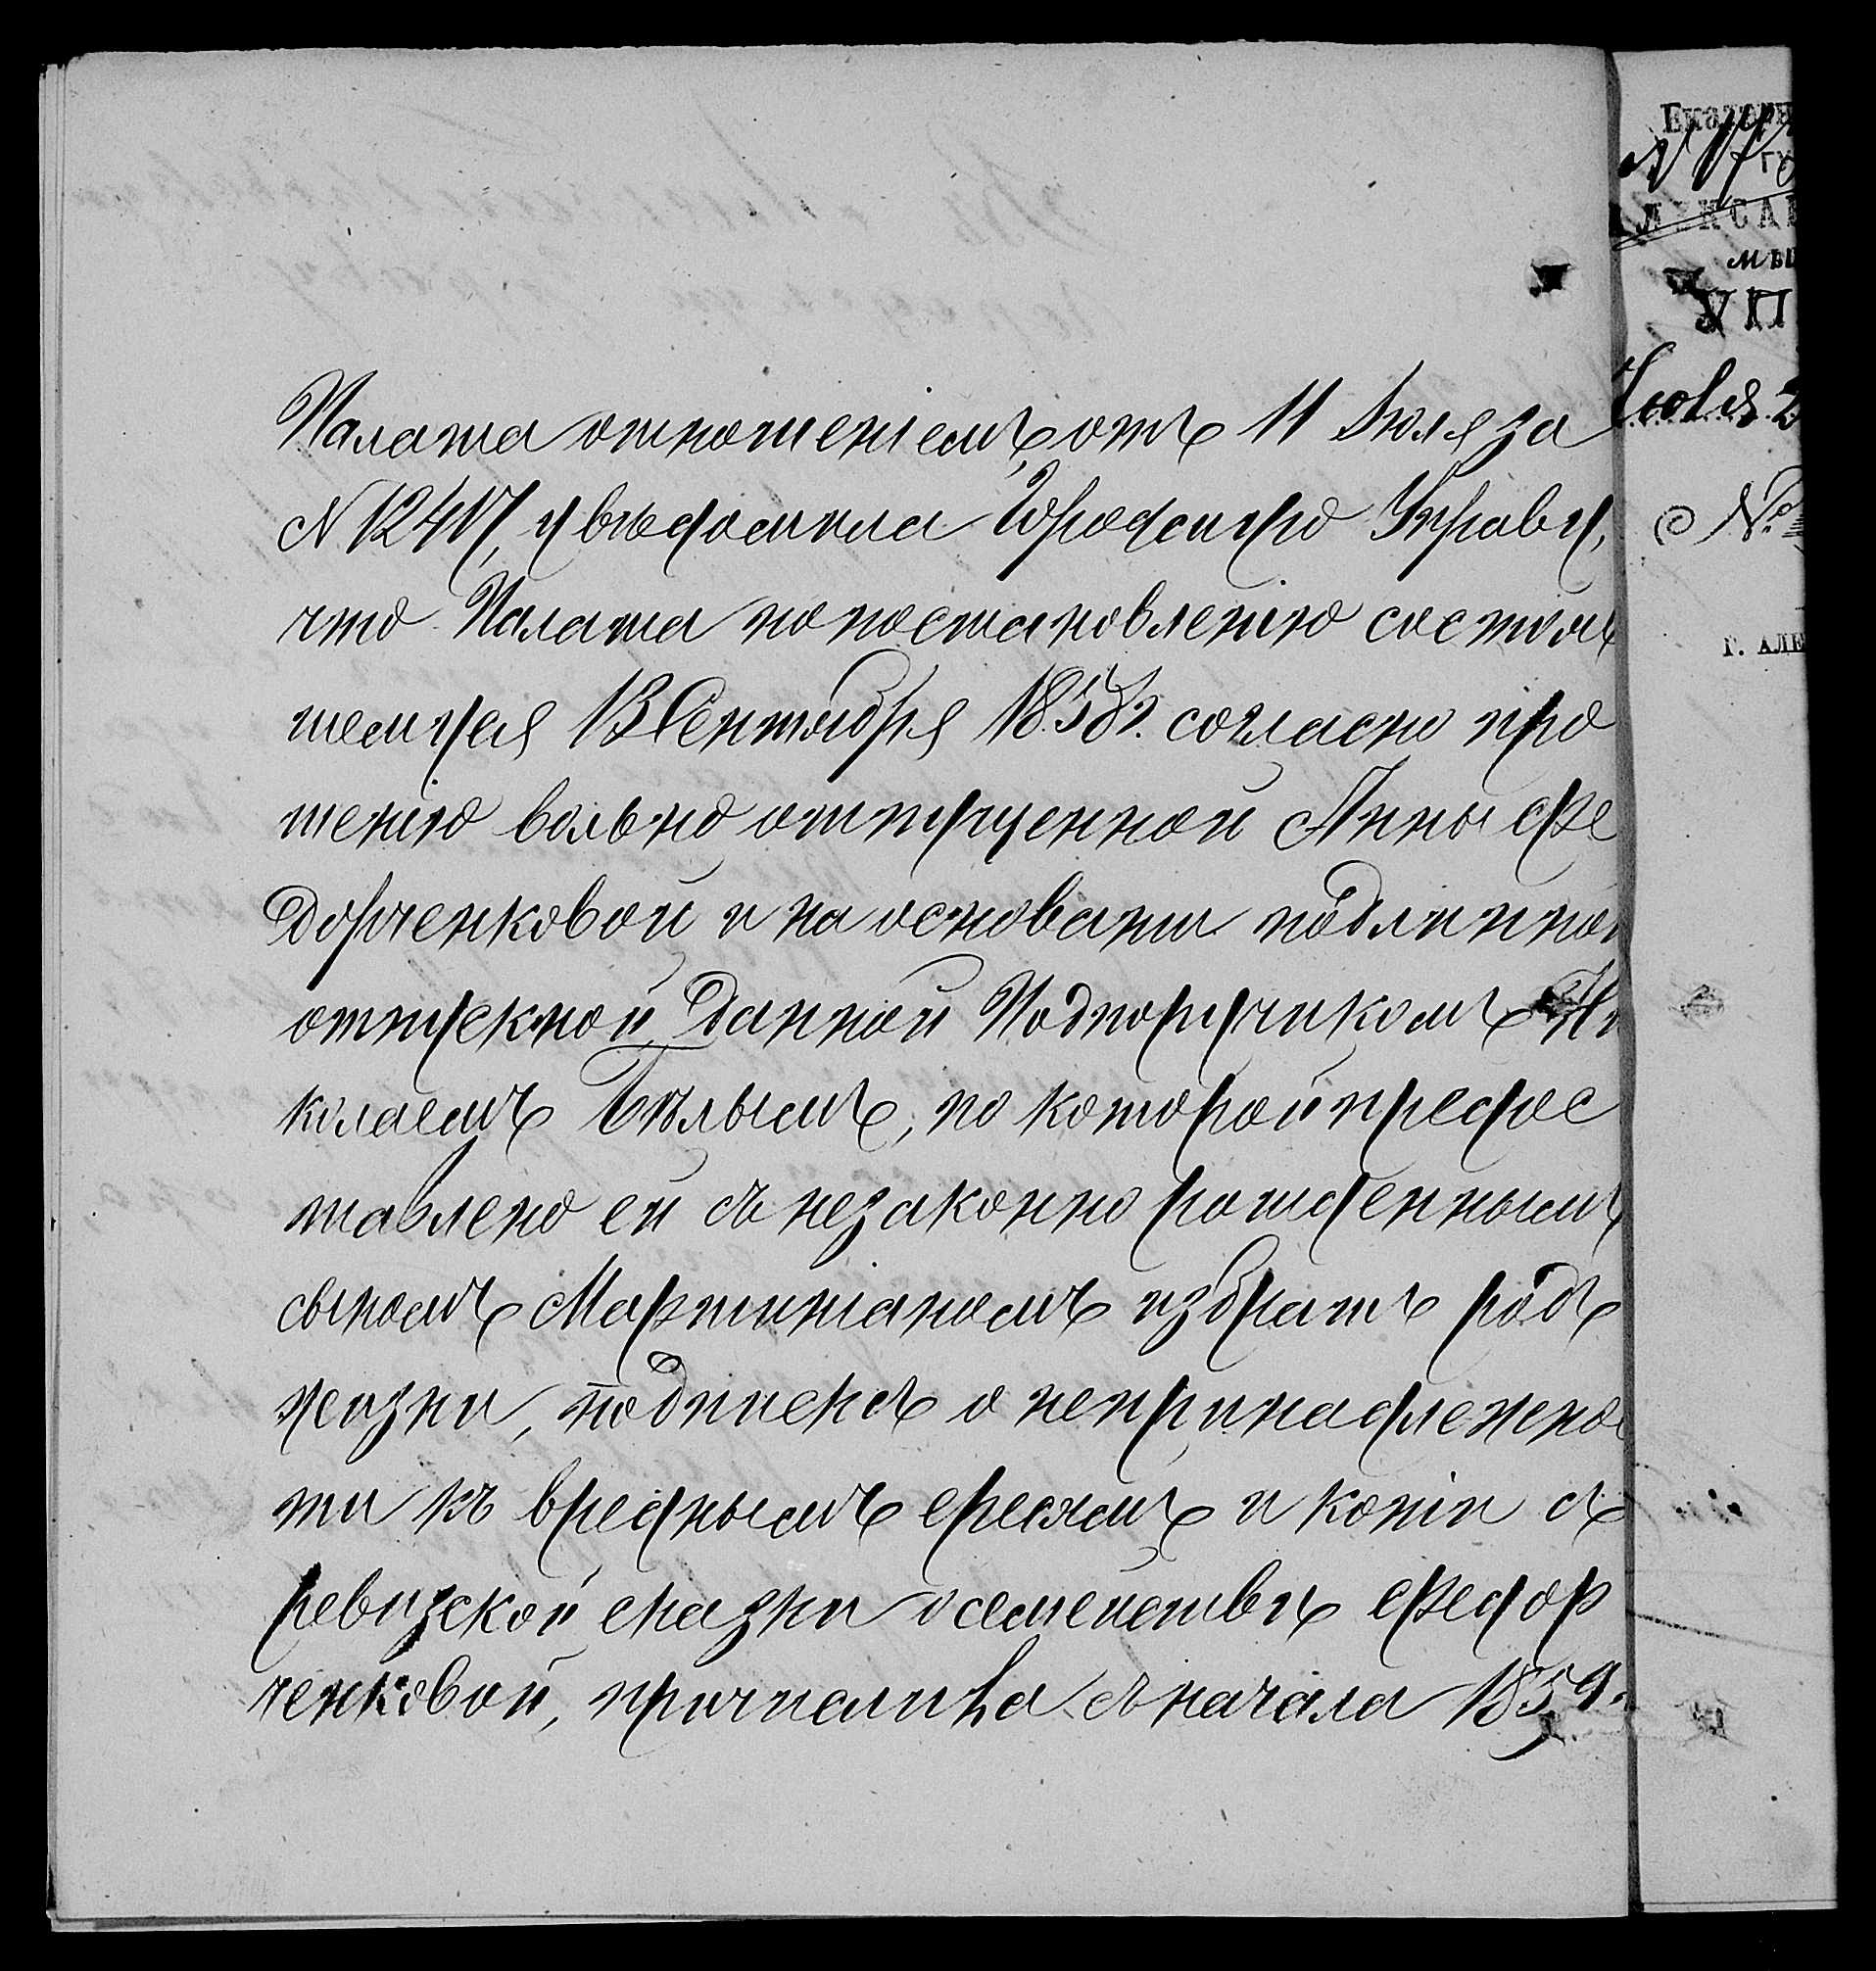 Палата отношеніемъ отъ 11 Іюля за
N 12417, увѣдомила Городскую Управу,
что Палата по постановленію состояв
шемуся 13 Сентября 1858г. согласно про
шенію вольно отпущенной Анны Фе
дорченковой и на основаніи подлинной
отпускной данной Подпоручикомъ Ни
колаемъ Бѣлымъ, по которой предос
тавлено ей съ незаконно рожденнымъ
сыномъ Мартиніаномъ избрать родъ
жизни, подписки о непринадлежнос
ти къ вреднымъ ересямъ и копіи съ
ревизской сказки о семействѣ Федор
ченковой, причислила съ начала 1859.
Екатерин
ГУ
АЛЕКСАН
УП
Іюля 2
№
Г. АЛЕ